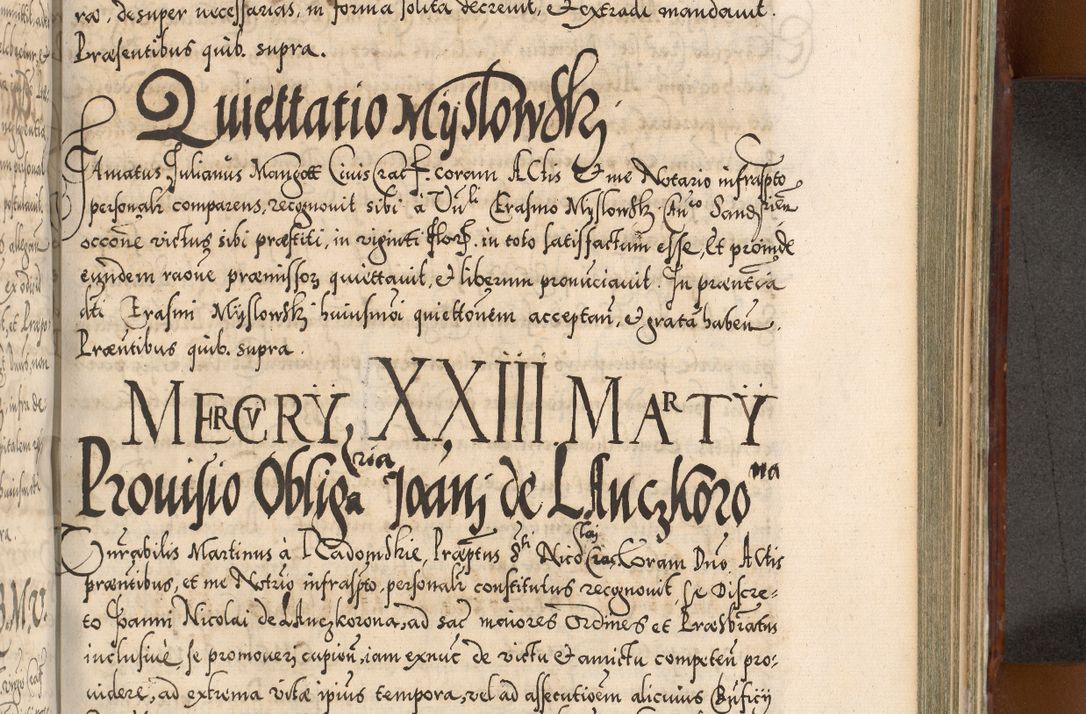 ra, desuper necessarias, in forma solita decreuit, et extradi mandauit.
Præsentibus quib. supra.
Quiettatio Mÿslowskj
Famatus Julianus Mangott Ciuis Crac. coram Actis et me Notario infraspto
personalr comparens, recognouit sibi à Vnli Erasmo Mÿslowskj
occone victus sibi præstiti, in viginti flor. in toto satisfactum esse, Et proinde
eundem raone præmissor quiettauit, et liberum pronuciauit. In præntia
dti Erasmi Mÿslowskj huiusmoi quiettonem acceptan, et grata haben.
Præntibus quib. supra.
MERCVRŸ XXIII MARTŸ
Prouisio Obligaria Joanj de LAnczkorona
Vnrabilis Martinus à RAdomskie, Præptus Sti Nicolai Crac Coram Dno, Actis
præntibus, et me Notrio infraspto, personalr constitutus recognouit, se Discre-
to Joanni Nicolai de LAnczkorona, ad sac maiores Ordines et Præsbratus
inclusiuè se promoueri cupien, iam exnuc de victu et amictu competen pro-
uidere, ad extrema vitæ ipius tempora, vel ad assecutioem alicuius Bnficÿ